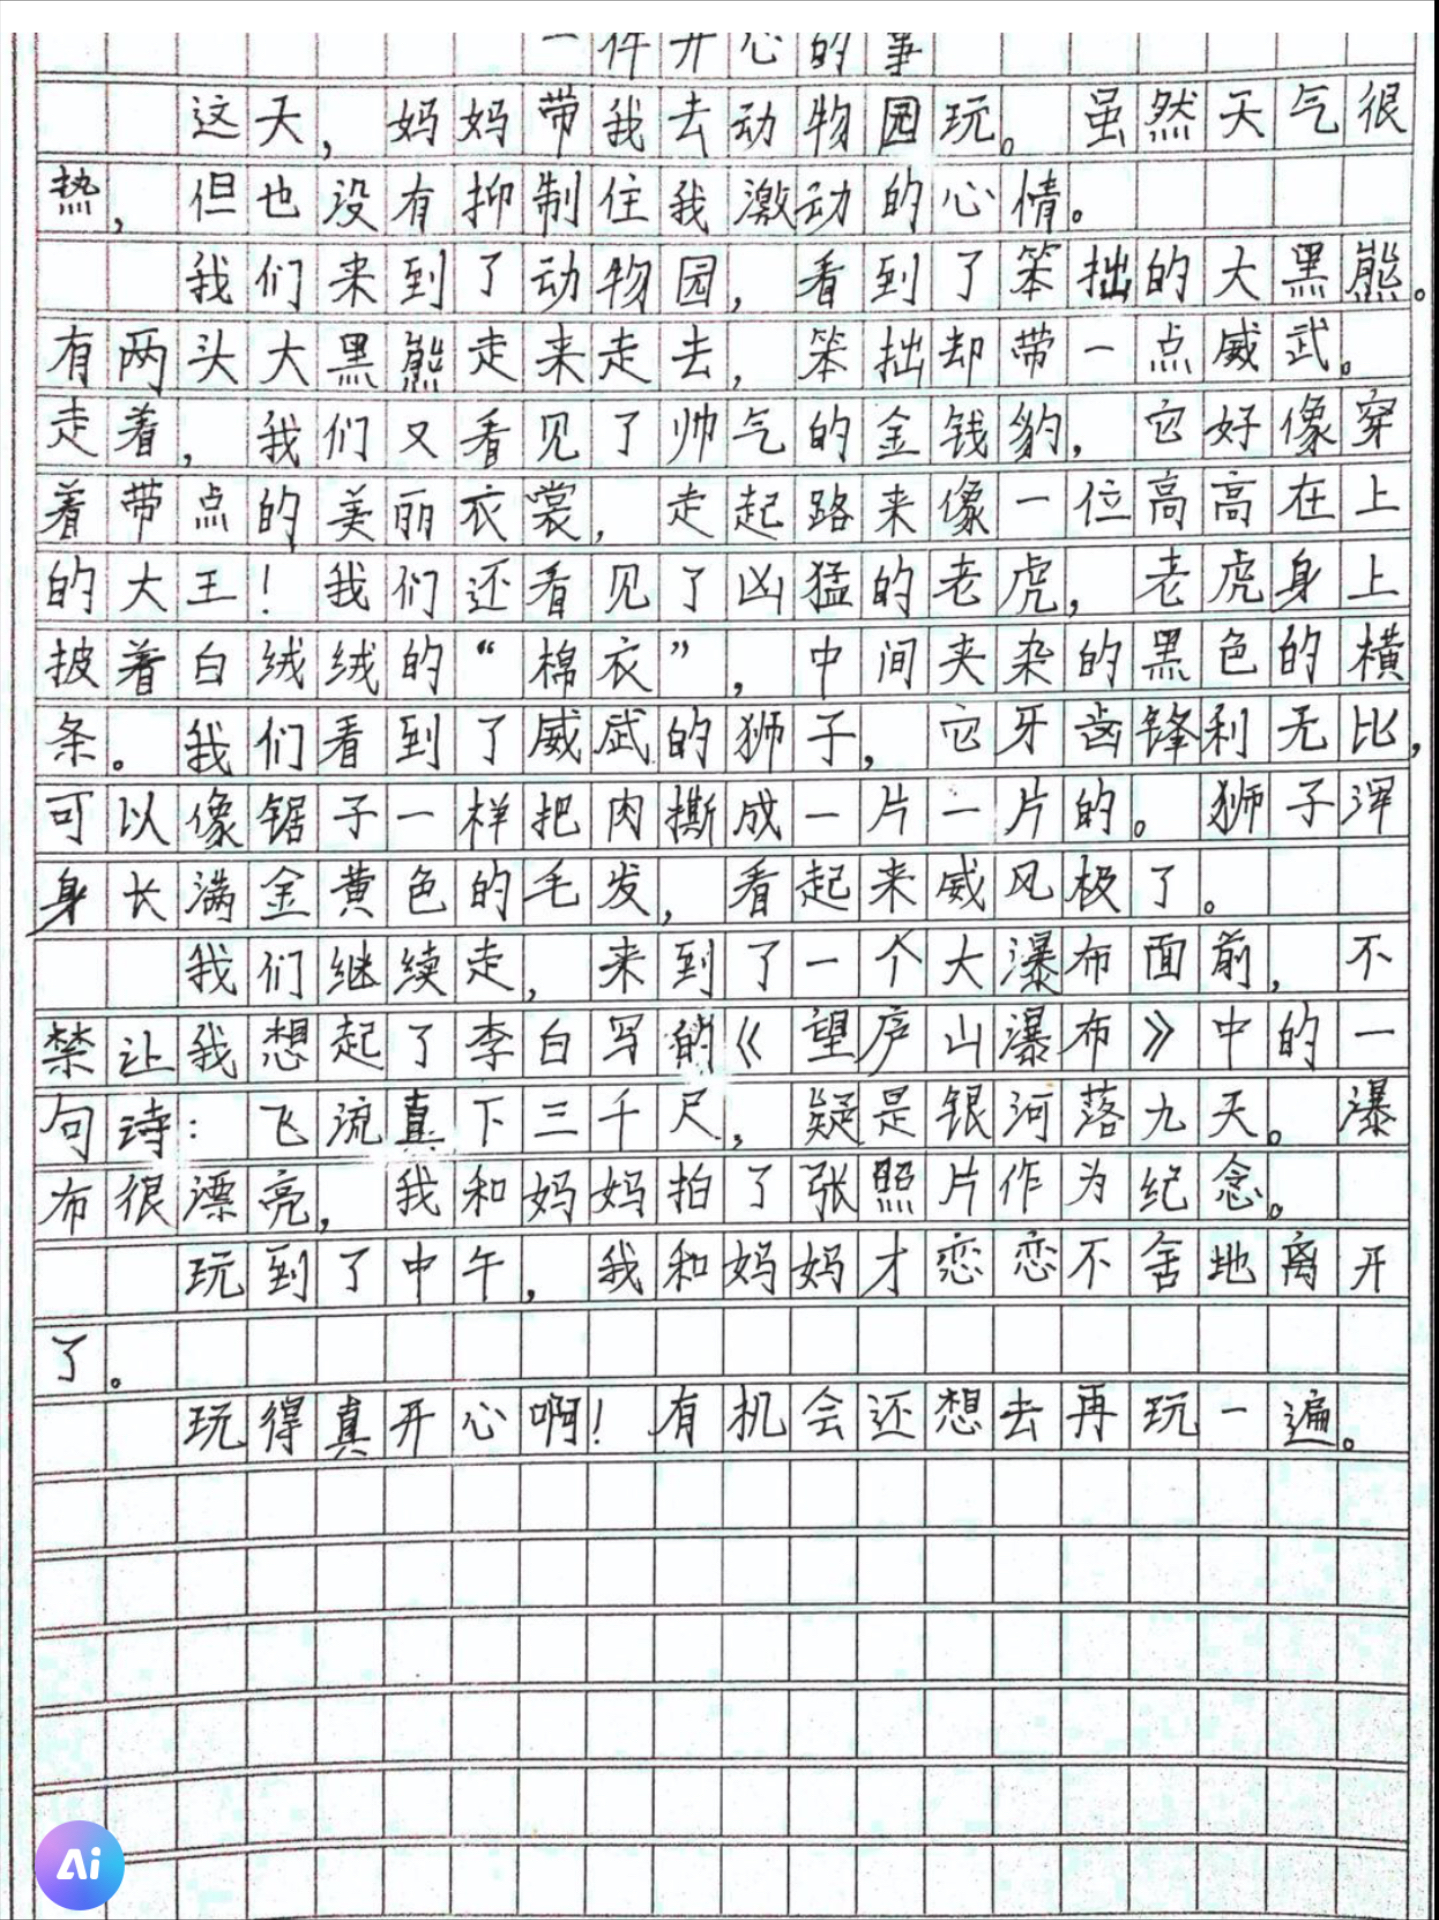 一件开心的事
这天，妈妈带我去动物园玩。虽然天气很
热，但也没有抑制住我激动的心情。
我们来到了动物园，看到了笨拙的大黑熊。
有两头大黑熊走来走去，笨拙却带一点威武。
走着，我们又看见了帅气的金钱豹，它好像穿
着带点的美丽衣裳，走起路来像一位高高在上
的大王！我们还看见了凶猛的老虎，老虎身上
披着白绒绒的“棉衣”，中间夹杂的黑色的横
条。我们看到了威武的狮子，它牙齿锋利无比，
可以像锯子一样把肉撕成一片一片的。狮子浑
身长满金黄色的毛发，看起来威风极了。
我们继续走，来到了一个大瀑布面前，不
禁让我想起了李白写的《望庐山瀑布》中的一
句诗：飞流直下三千尺，疑是银河落九天。瀑
布很漂亮，我和妈妈拍了张照片作为纪念。
玩到了中午，我和妈妈才恋恋不舍地离开
了。
玩得真开心啊！有机会还想去再玩一遍。
Ai